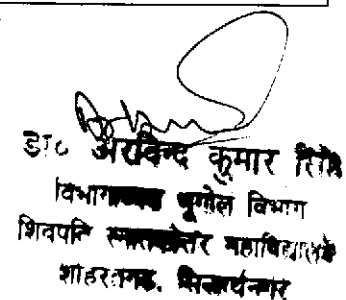 डा० अरविन्द कुमार सिंह
विभागाध्यक्ष भूगोल विभाग
शिवपति स्नातकोत्तर महाविद्यालय
शोहरतगढ, सिद्धार्थनगर